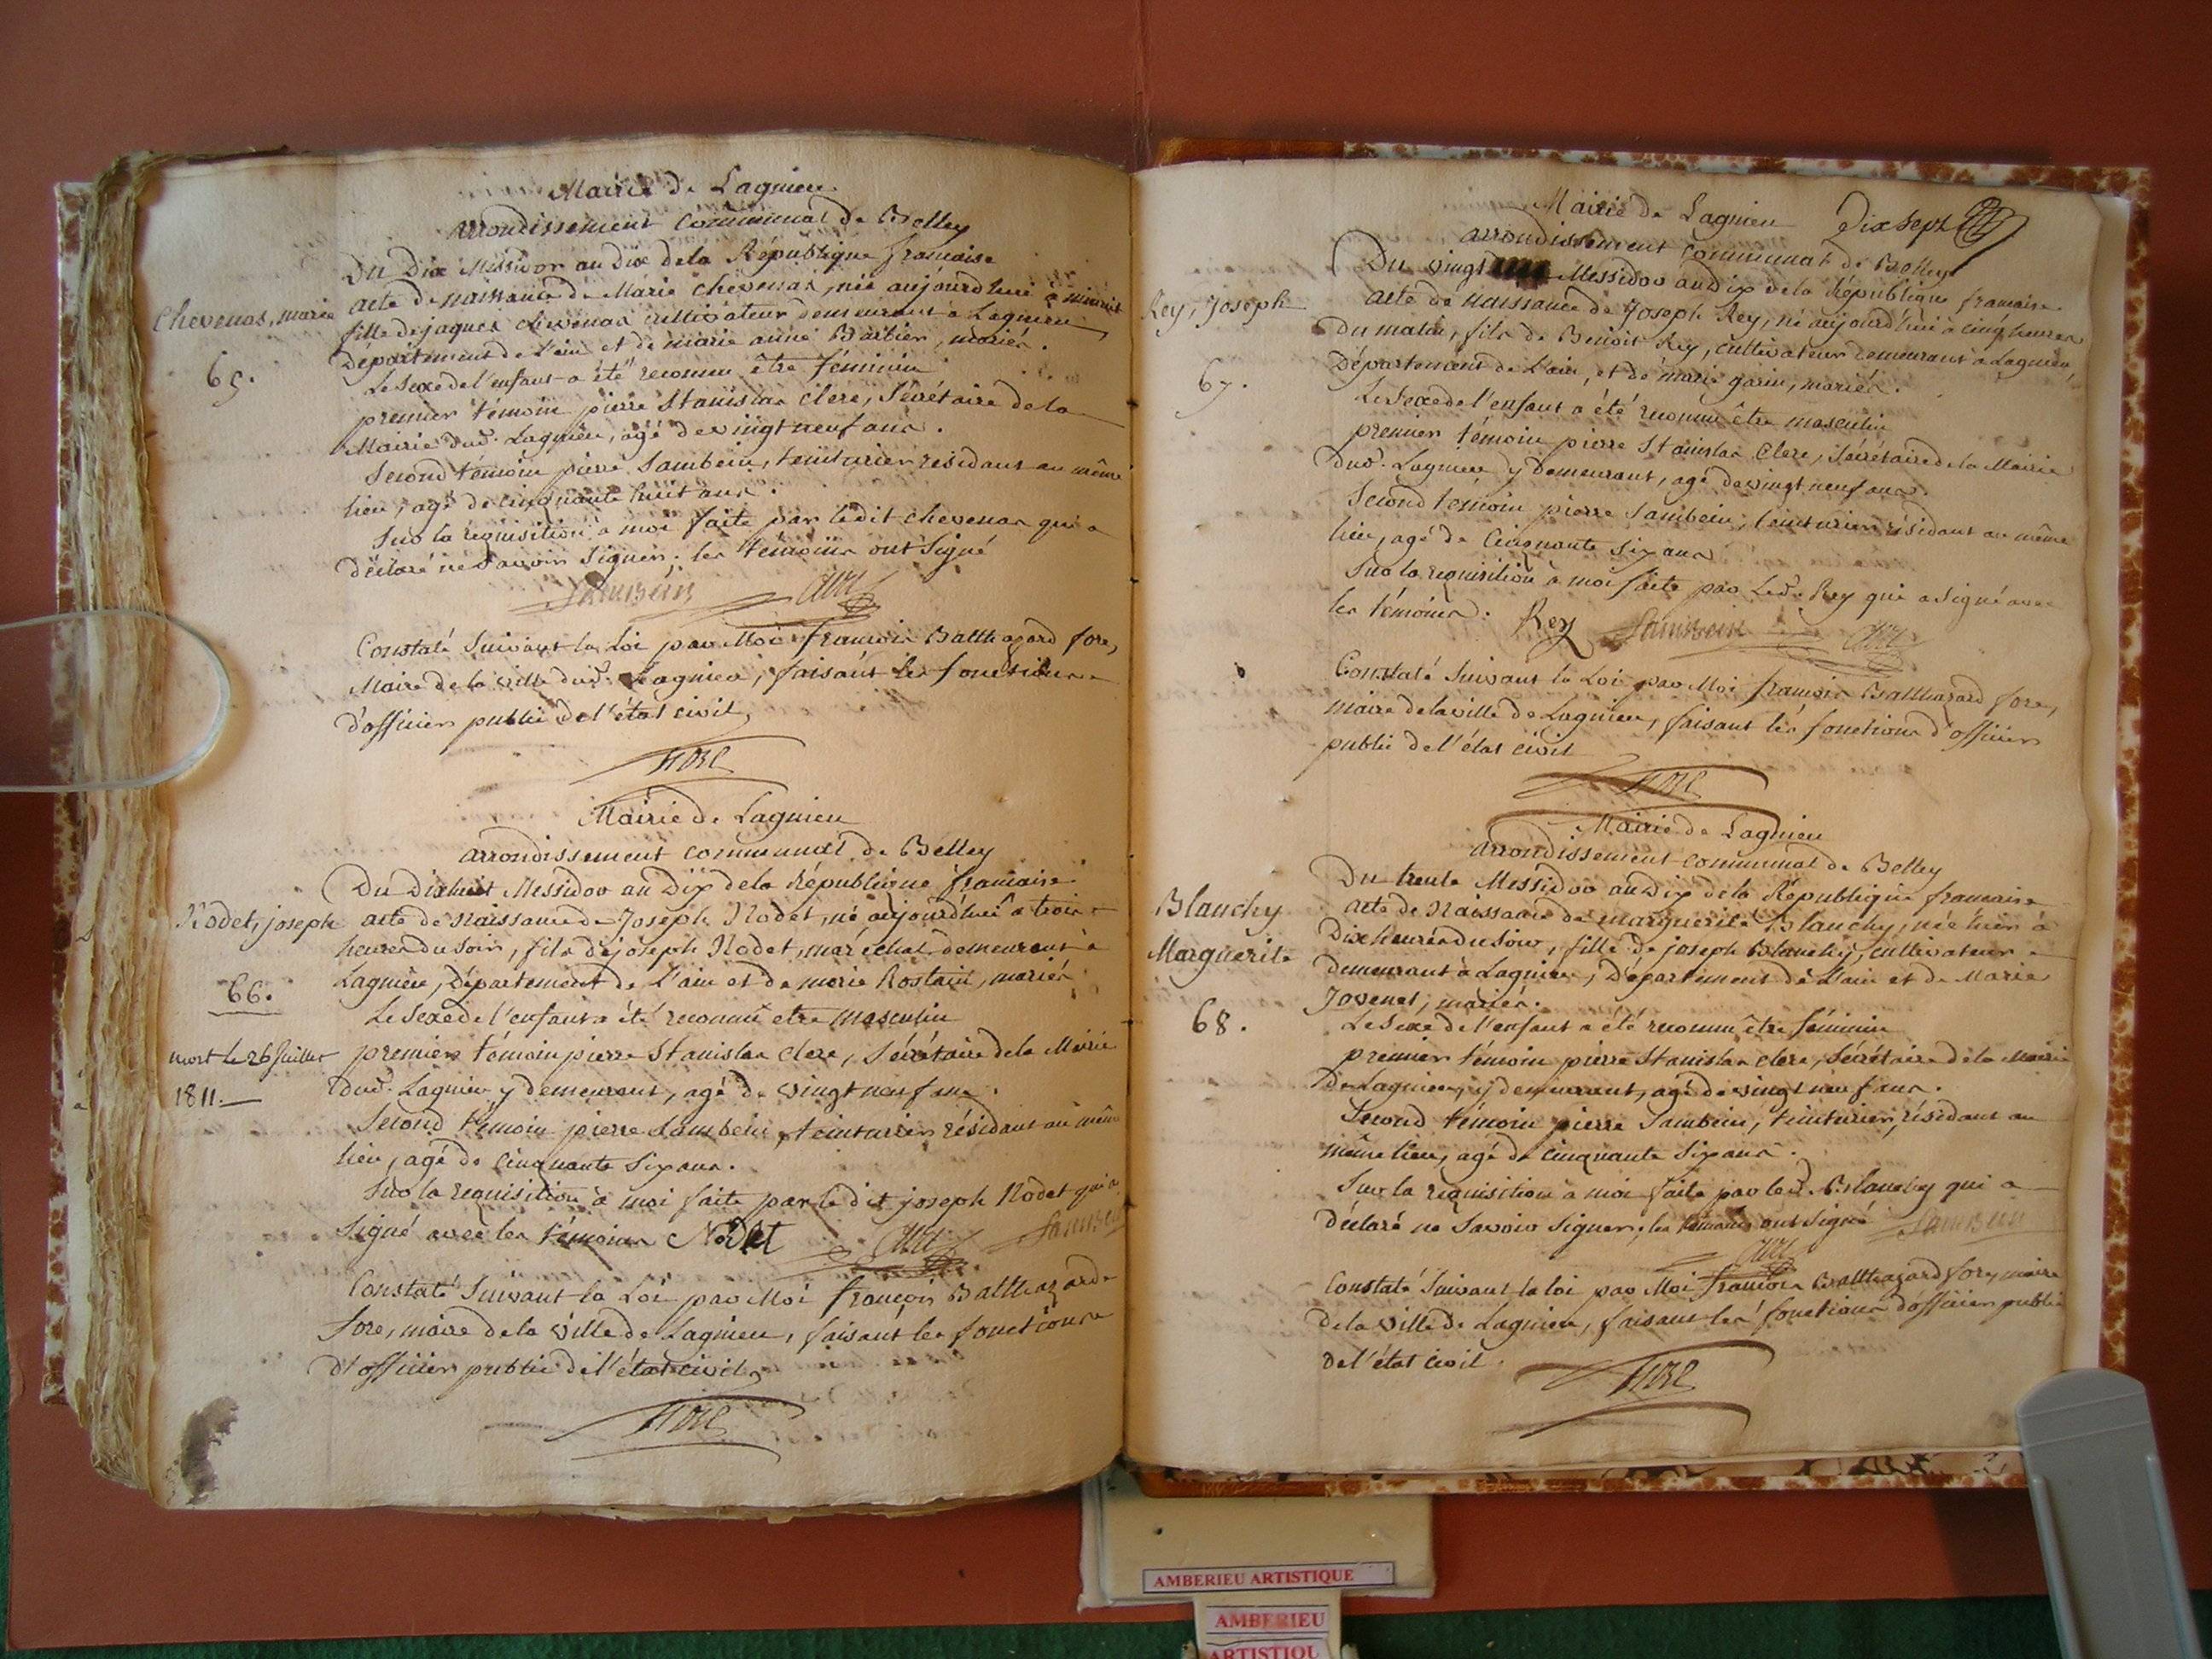 Mairie de Lagnieu
arrondissement Communal de Belley
Du Dix Messidor an dix de la République francaise
Chevenas, marie
acte de naissance de Marie Chevenas, née aujourd'hui à minuit
fille de jaques chevenas cultivateur demeurant à Lagnieu
65.
Département de l'ain et de marie anne Barbier, mariés.
Le sexe de l'enfant a été reconnu être féminin
premier témoin pierre Stanislas clerc, Sécrétaire de la
Mairie dud. Lagnieu, agé de vingt neuf ans.
Second témoin pierre Sambein, teinturier residant au même
lieu, agé de cinquante huit ans.
Sur la requisition à moi faite par ledit chevenas qui a
déclaré ne savoir signer; les témoins ont signé
Sambein
Constaté Suivant la Loi par Moi francois Balthazard fore,
Maire de la ville dud. Lagnieu, faisant les fonctions
d'officier public de l'état civil
fore
Mairie de Lagnieu
arrondissement communal de Belley
Du Dixhuit Messidor an Dix de la République francaise
Nodet, joseph
acte de Naissance de Joseph Nodet, né aujourd'hui a trois
heures du soir, fils de joseph Nodet, maréchal demeurant à
66.
Lagnieu, Département de l'ain et de marie Rostain, mariés
Le Sexe de l'enfant a été reconnu etre masculin
mort le 26 Juillet
1811.
premier témoin pierre Stanislas clerc, Sécrétaire de la Mairie
dud. Lagnieu y demeurant, agé de vingt neuf ans.
Second témoin pierre Sambein, teinturier résidant au même
lieu, agé de cinquante six ans.
Sur la requisition à moi faite par ledit joseph Nodet qui a
signé avec les témoins Nodet Sambein
Constaté Suivant la Loi par Moi françois Balthazard
fore, maire de la ville de Lagnieu, faisant les fonctions
d'officier public de l'état civil
fore
Mairie de Lagnieu Dix sept
arrondissement Communal de Belley
Du vingt Messidor an dix de la République francaise
Rey, Joseph
acte de naissance de Joseph Rey, né aujourd'hui à cinq heures
du matin, fils de Benoit Rey, cultivateur demeurant à Lagnieu,
67.
Département de l'ain, et de marie garin, mariés.
Le Sexe de l'enfant a été reconnu être masculin
premier témoin pierre Stanislas Clerc, Sécrétaire de la Mairie
dud. Lagnieu y demeurant, agé de vingt neuf ans.
Second témoin pierre Sambein, teinturier résidant au même
lieu, agé de Cinquante six ans
Sur la requisition à moi faite par Led. Rey qui a signé avec
les témoins. Rey Sambein
Constaté Suivant la Loi par Moi francois Balthazard fore,
maire de la ville de Lagnieu, faisant les fonctions d'officier
public de l'état civil
fore
Mairie de Lagnieu
arrondissement communal de Belley
Du trente Messidor an Dix de la République francaise
Blanchy
Marguerite
acte de Naissance de marguerite Blanchy, née hier à
Dix heures du soir, fille de joseph Blanchy, cultivateur
demeurant à Lagnieu, Département de l'ain et de Marie
Jovenet, mariés.
68.
Le Sexe de l'enfant a été reconnu être féminin
premier témoin pierre Stanislas clerc, Sécrétaire de la Mairie
de Lagnieu, y demeurant, agé de vingt neuf ans.
Second témoin pierre Sambein, teinturier, résidant au
même lieu, agé de cinquante six ans.
Sur la requisition à moi faite par led. Blanchy qui a
déclaré ne Savoir signer; les témoins ont signé Sambein
Constaté Suivant la loi par Moi francois Balthazard fore, maire
de la ville de Lagnieu, faisant les fonctions d'officier public
de l'état civil.
fore
AMBERIEU ARTISTIQUE
AMBERIEU
ARTISTIQU